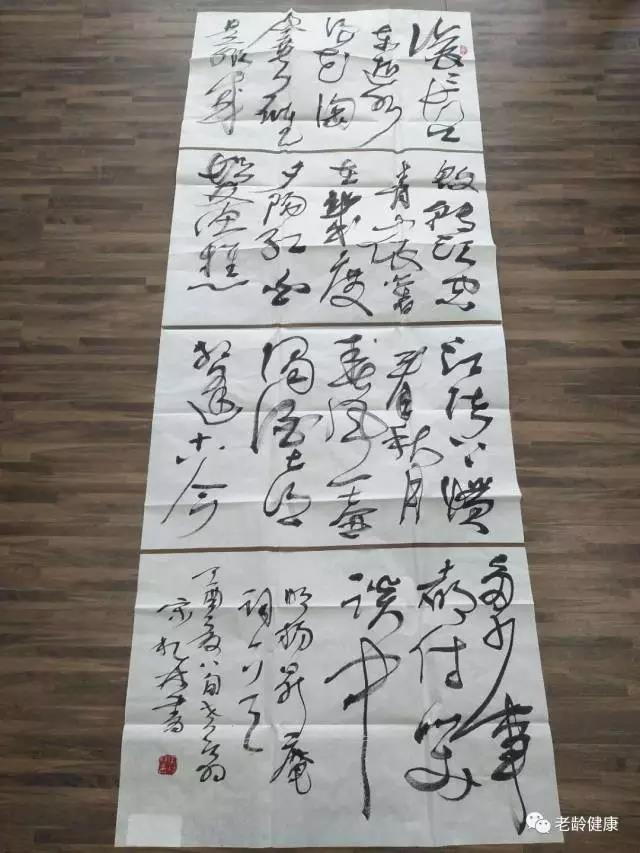 滚滚长江
东逝水
浪花淘
尽英雄
是非成
败转头空
青山依旧
在几度
夕阳红白
发渔樵
江渚上惯
看秋月
春风一壶
浊酒喜
相逢古今
多少事
都付笑
谈中
明杨升庵
词一
丁酉夏八旬老翁
书
老龄健康